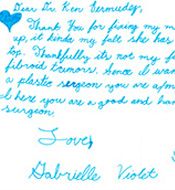 Dear Dr. Ken Bermudez,
Thank You for fixing my m
up, it kinda my felt she has
top. Thankfully its not my f
fibroid tumors. Since it wasn
a plastic surgeon you are a/m
I here you are a good and han
surgeon.
Love,
Gabrielle Violet